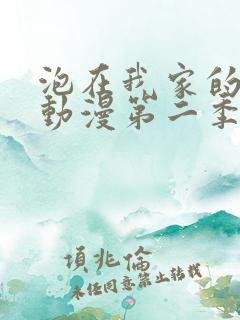 泡在我家的
動漫第二季
項兆倫
未任同意禁止轉載